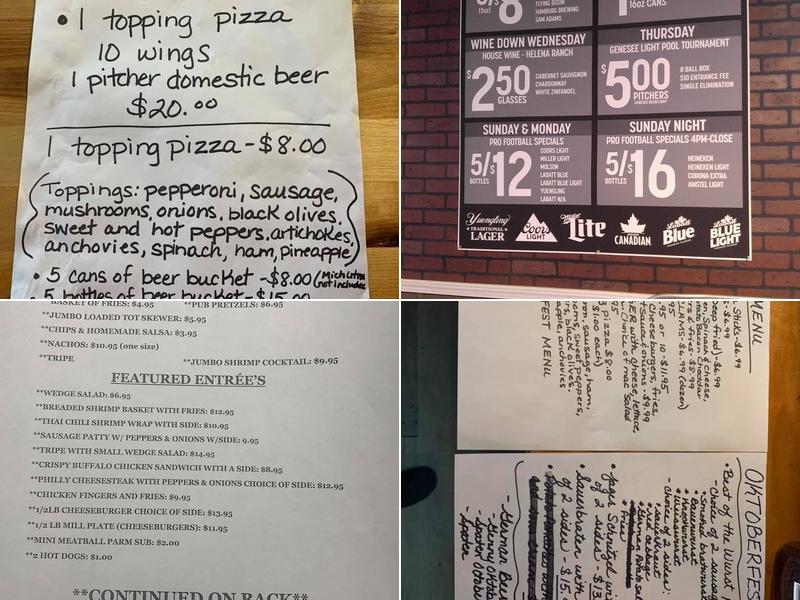 • 1 topping pizza
10 wings
1 pitcher domestic beer
$20.00
1 topping pizza - $8.00
(Toppings: pepperoni, sausage,
mushrooms, onions, black olives,
sweet and hot peppers, artichokes,
anchovies, spinach, ham, pineapple)
• 5 cans of beer bucket - $8.00 (Mich Ultra
not included
5 bottles of beer bucket - $15.00
(5oz) 8
FLYING BISON
HAMBURG BREWING
SAM ADAMS
16oz CANS
WINE DOWN WEDNESDAY
HOUSE WINE - HELENA RANCH
$2.50
GLASSES
CABERNET SAUVIGNON
CHARDONNAY
WHITE ZINFANDEL
THURSDAY
GENESEE LIGHT POOL TOURNAMENT
$5.00
PITCHERS
GENESEE BEER/LIGHT
8 BALL BOX
$10 ENTRANCE FEE
SINGLE ELIMINATION
SUNDAY & MONDAY
PRO FOOTBALL SPECIALS
5/$12
BOTTLES
COORS LIGHT
MILLER LIGHT
MOLSON
LABATT BLUE
LABATT BLUE LIGHT
YUENGLING
LABATT N/A
SUNDAY NIGHT
PRO FOOTBALL SPECIALS 4PM-CLOSE
5/$16
BOTTLES
HEINEKEN
HEINEKEN LIGHT
CORONA EXTRA
AMSTEL LIGHT
Yuengling
TRADITIONAL
LAGER
Coors
LIGHT
Miller
Lite
CANADIAN
Labatt
Blue
Labatt
BLUE
LIGHT
BASKET OF FRIES: $4.95
**PUB PRETZELS: $6.95
**JUMBO LOADED TOT SKEWER: $5.95
**CHIPS & HOMEMADE SALSA: $3.95
**NACHOS: $10.95 (one size)
**TRIPE
**JUMBO SHRIMP COCKTAIL: $9.95
FEATURED ENTRÉE'S
**WEDGE SALAD: $6.95
**BREADED SHRIMP BASKET WITH FRIES: $12.95
**THAI CHILI SHRIMP WRAP WITH SIDE: $10.95
**SAUSAGE PATTY W/ PEPPERS & ONIONS W/SIDE: 9.95
**TRIPE WITH SMALL WEDGE SALAD: $14.95
**CRISPY BUFFALO CHICKEN SANDWICH WITH A SIDE: $8.95
**PHILLY CHEESESTEAK WITH PEPPERS & ONIONS CHOICE OF SIDE: $12.95
**CHICKEN FINGERS AND FRIES: $9.95
**1/2LB CHEESEBURGER CHOICE OF SIDE: $13.95
**1/2 LB MILL PLATE (CHEESEBURGERS): $11.95
**MINI MEATBALL PARM SUB: $2.00
**2 HOT DOGS: $1.00
**CONTINUED ON BACK**
MENU
Sticks - $6.99
- $6.99
en, Spinach & cheese,
tato Bacon Cheddar
deep fried) - $6.99
rs & fries $8.99
LAMS - $6.99 (dozen)
.95 or 10 - $11.95
Cheeseburgers, fries,
t sauce & onions - $9.99
ER with cheese, lettuce,
choice of mac salad
95
g pizza $8.00
$1.00 each)
ron, sausage, ham,
oms, sweet peppers,
rs, black olives,
apple, anchovies
FEST MENU
OKTOBERFES
• Best of the Wurst
- Choice of 2 sausag
* Smoked bratwurst
* Bauernwurst
* Knockwurst
* Weisswurst
- choice of 2 sides:
* sauerkraut
* red cabbage
* German potato sal
* fries
• Jager Schnitzel wi
of 2 sides - $13.
• Sauerbraten with
of 2 sides - $15.
- German Bee
- Spaten Oktob
- Spaten